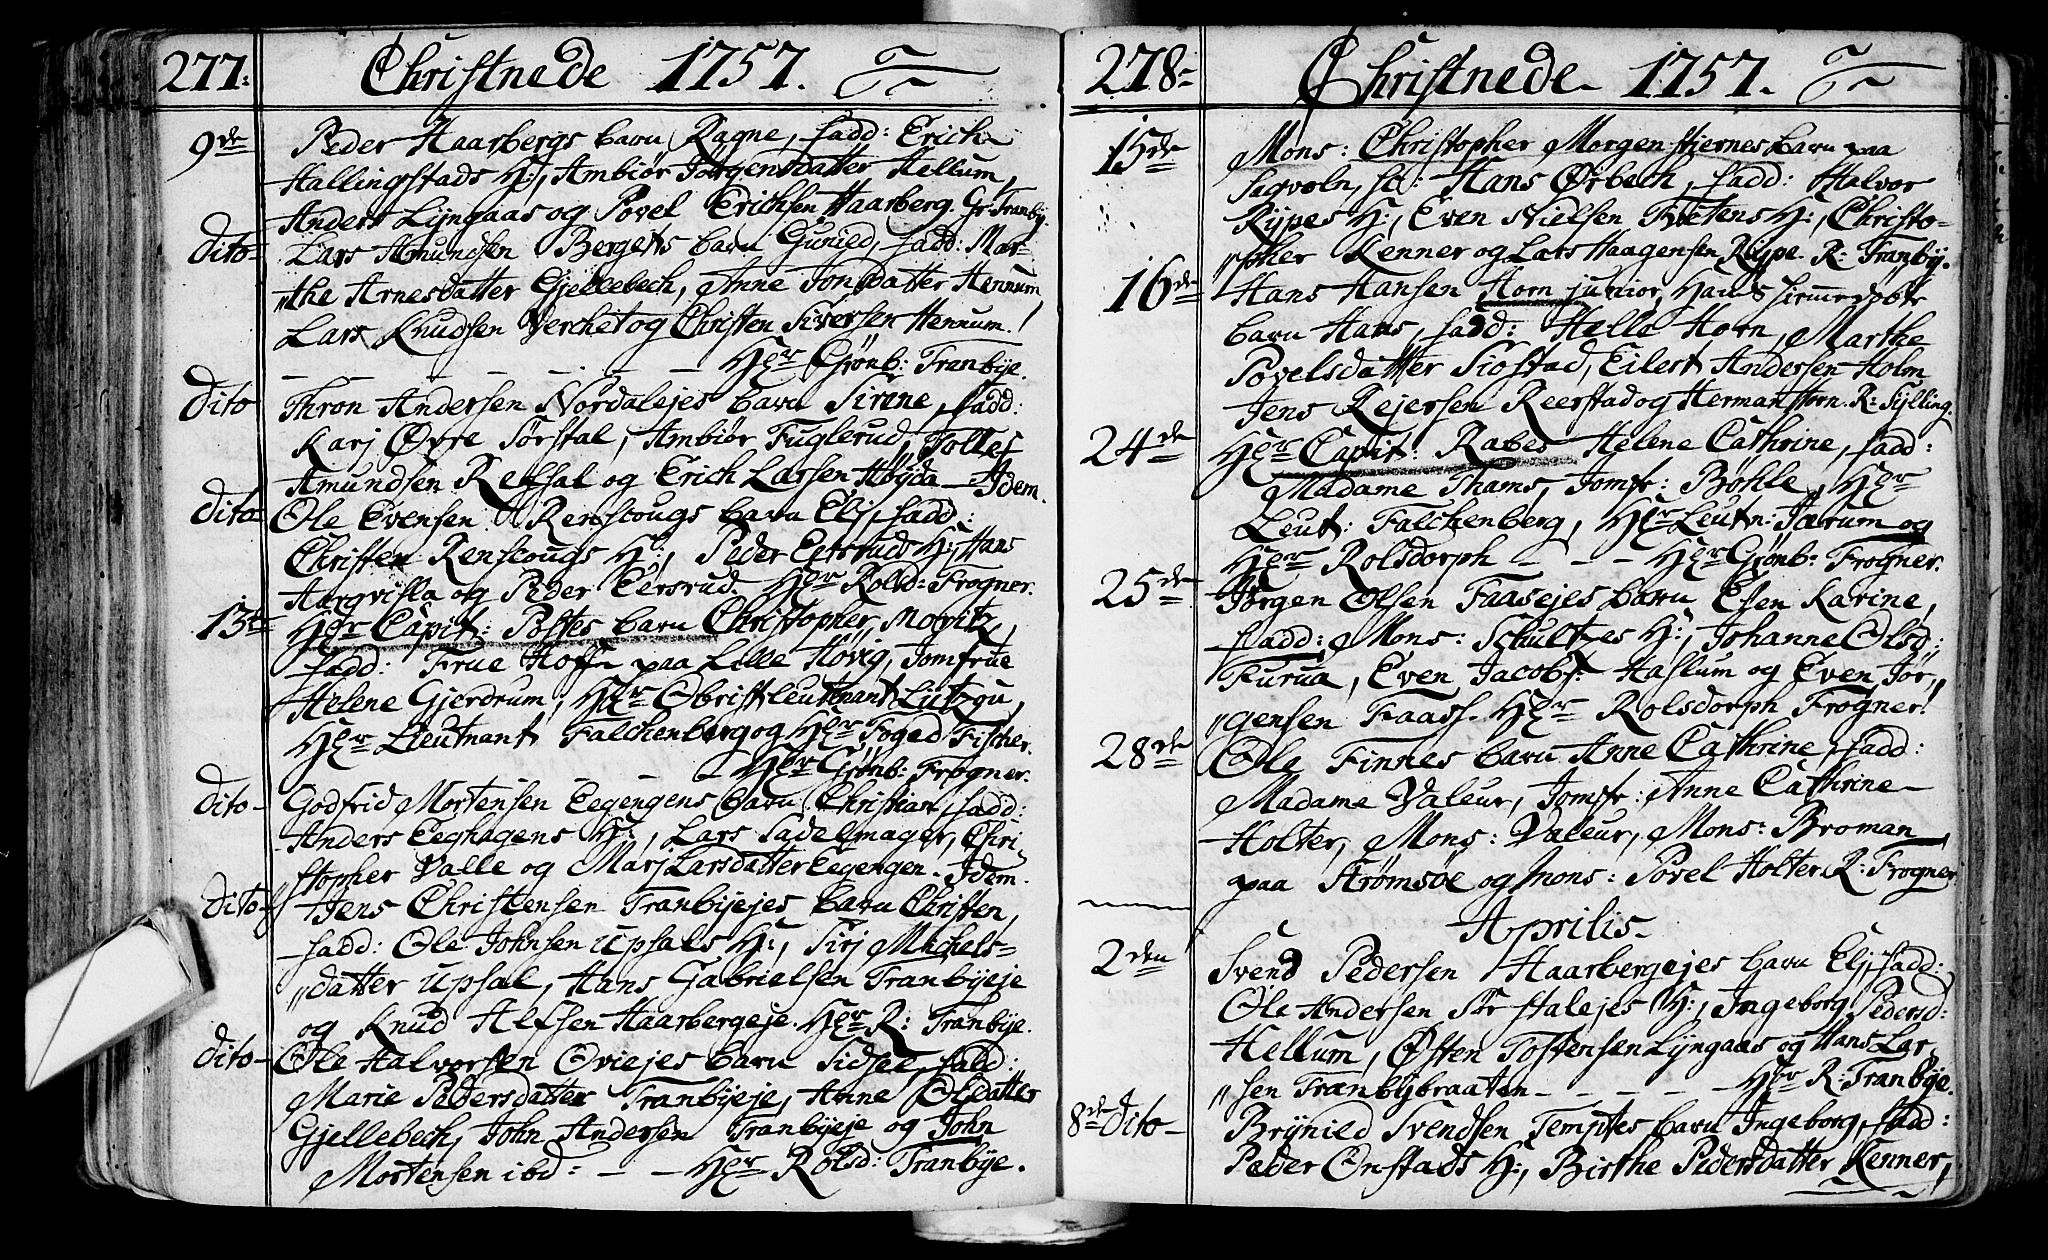 277. Christnede 1757.
9de Peder Haarbergs barn Ragne, fadd: Erich
Hallingstads H:, Ambiør Jørgensdatter Hellum,
Anders Lijngaas og Povel Erichsen Haarberg. Gr: Tranby.
Dito- Lars Amundsen Bergets barn Gunild, fadd: Mar-
"the Arnesdatter Gjellebech, Anne Jonsdatter Hennum,
Lars Knudsen Verchet og Christen Siversen Hennum.
Hr Grønb: Tranbye.
Dito Thron Andersen Nordalejes barn Sirine, fadd:
Karj Øvre Sørstal, Ambiør Fuglerud, Tollef
Amundsen Refsal og Erich Larsen Høyda - Idem.
Dito- Ole Evensen Renscougs barn Elj, fadd:
Christen Renscougs H:, Peder Eersruds H:, Hans
Aargvilla og Peder Eersrud. Hr Rolsd: Frogner.
13de Hr Capit: Postes barn Christopher Moritz,
fadd: Frue Hoff paa Lille Høvig, Jomfrue
Helene Gjerdrum, Hr Obristleutnant Lützou,
Hr Lieutnant Falchenberg og Hr Foged Fischer.
- Hr Grønb: Frogner.
Dito- Godfrid Mortensen Eegengens barn Christian, fadd:
Anders Eeghagens H:, Lars Sadelmager, Chri-
stopher Valle og Marj Larsdatter Eegengen. Idem.
Dito- Jens Christensen Tranbyejes barn Christen,
fadd: Ole Johnsen Upsals H:, Sirj Michels-
"datter Upsal, Hans Gabrielsen Tranbyeje
og Knud Alfsen Haarbergeje. Hr R: Tranbye.
Dito- Ole Halvorsen Oviejes barn Sidsel, fadd:
Marie Pedersdatter Tranbyeje, Anne Olsdatter
Gjellebech, John Andersen Tranbyeje og John
Mortensen ibd: - - Hr Rolsd: Tranbye.
278- Christnede 1757.
15de Mons: Christopher Morgenstiernes barn paa
Sagvoln, Hans Ørbech, fadd: Halvor
Rypes H:, Even Nielsen Tvetens H:, Christo-
"pher Kenner og Lars Haagensen Rype. R: Tranby.
16de Hans Hansen Horn junior, Hans hiemedøbte
barn Hans, fadd: Helle Horn, Marthe
Povelsdatter Siøstad, Eilert Andersen Holm
Jens Rejersen Reerstad og Herman Horn. R: Sylling.
24de Hr Capit: Rabes Helene Cathrine, fadd:
Madame Thams, Jomfr: Bøhle, Hr
Leut: Falchenberg, Hr Leutn: Jærum og
Hr Rolsdorph - - - Hr Grønb: Frogner.
25de Jørgen Olsen Faasejes barn Elen Karine,
fadd: Mons: Schultzes H:, Johanne Olsd:
Furua, Even Jacobs: Haslum og Even Jør-
"gensen Faass. Hr Rolsdorph Frogner.
28de Ole Finnes barn Anne Cathrine, fadd:
Madame Valeur, Jomfr: Anne Cathrine
Holter, Mons: Valeur, Mons: Broman
paa Strømsøe og Mons: Povel Holter R: Frogner
Aprilis-
2den Svend Pedersen Haarbergejes barn Elj, fadd:
Ole Andersen Sørstalejes H:, Ingeborg Pedersd:
Hellum, Østen Tostensen Lyngaas og Hans Lar-
"sen Tranbybraaten - - - - Hr R: Tranbye.
8de Dito- Brynild Svendsen Temptes barn Ingeborg, fadd:
Peder Onstads H:, Birthe Pedersdatter Kenner,